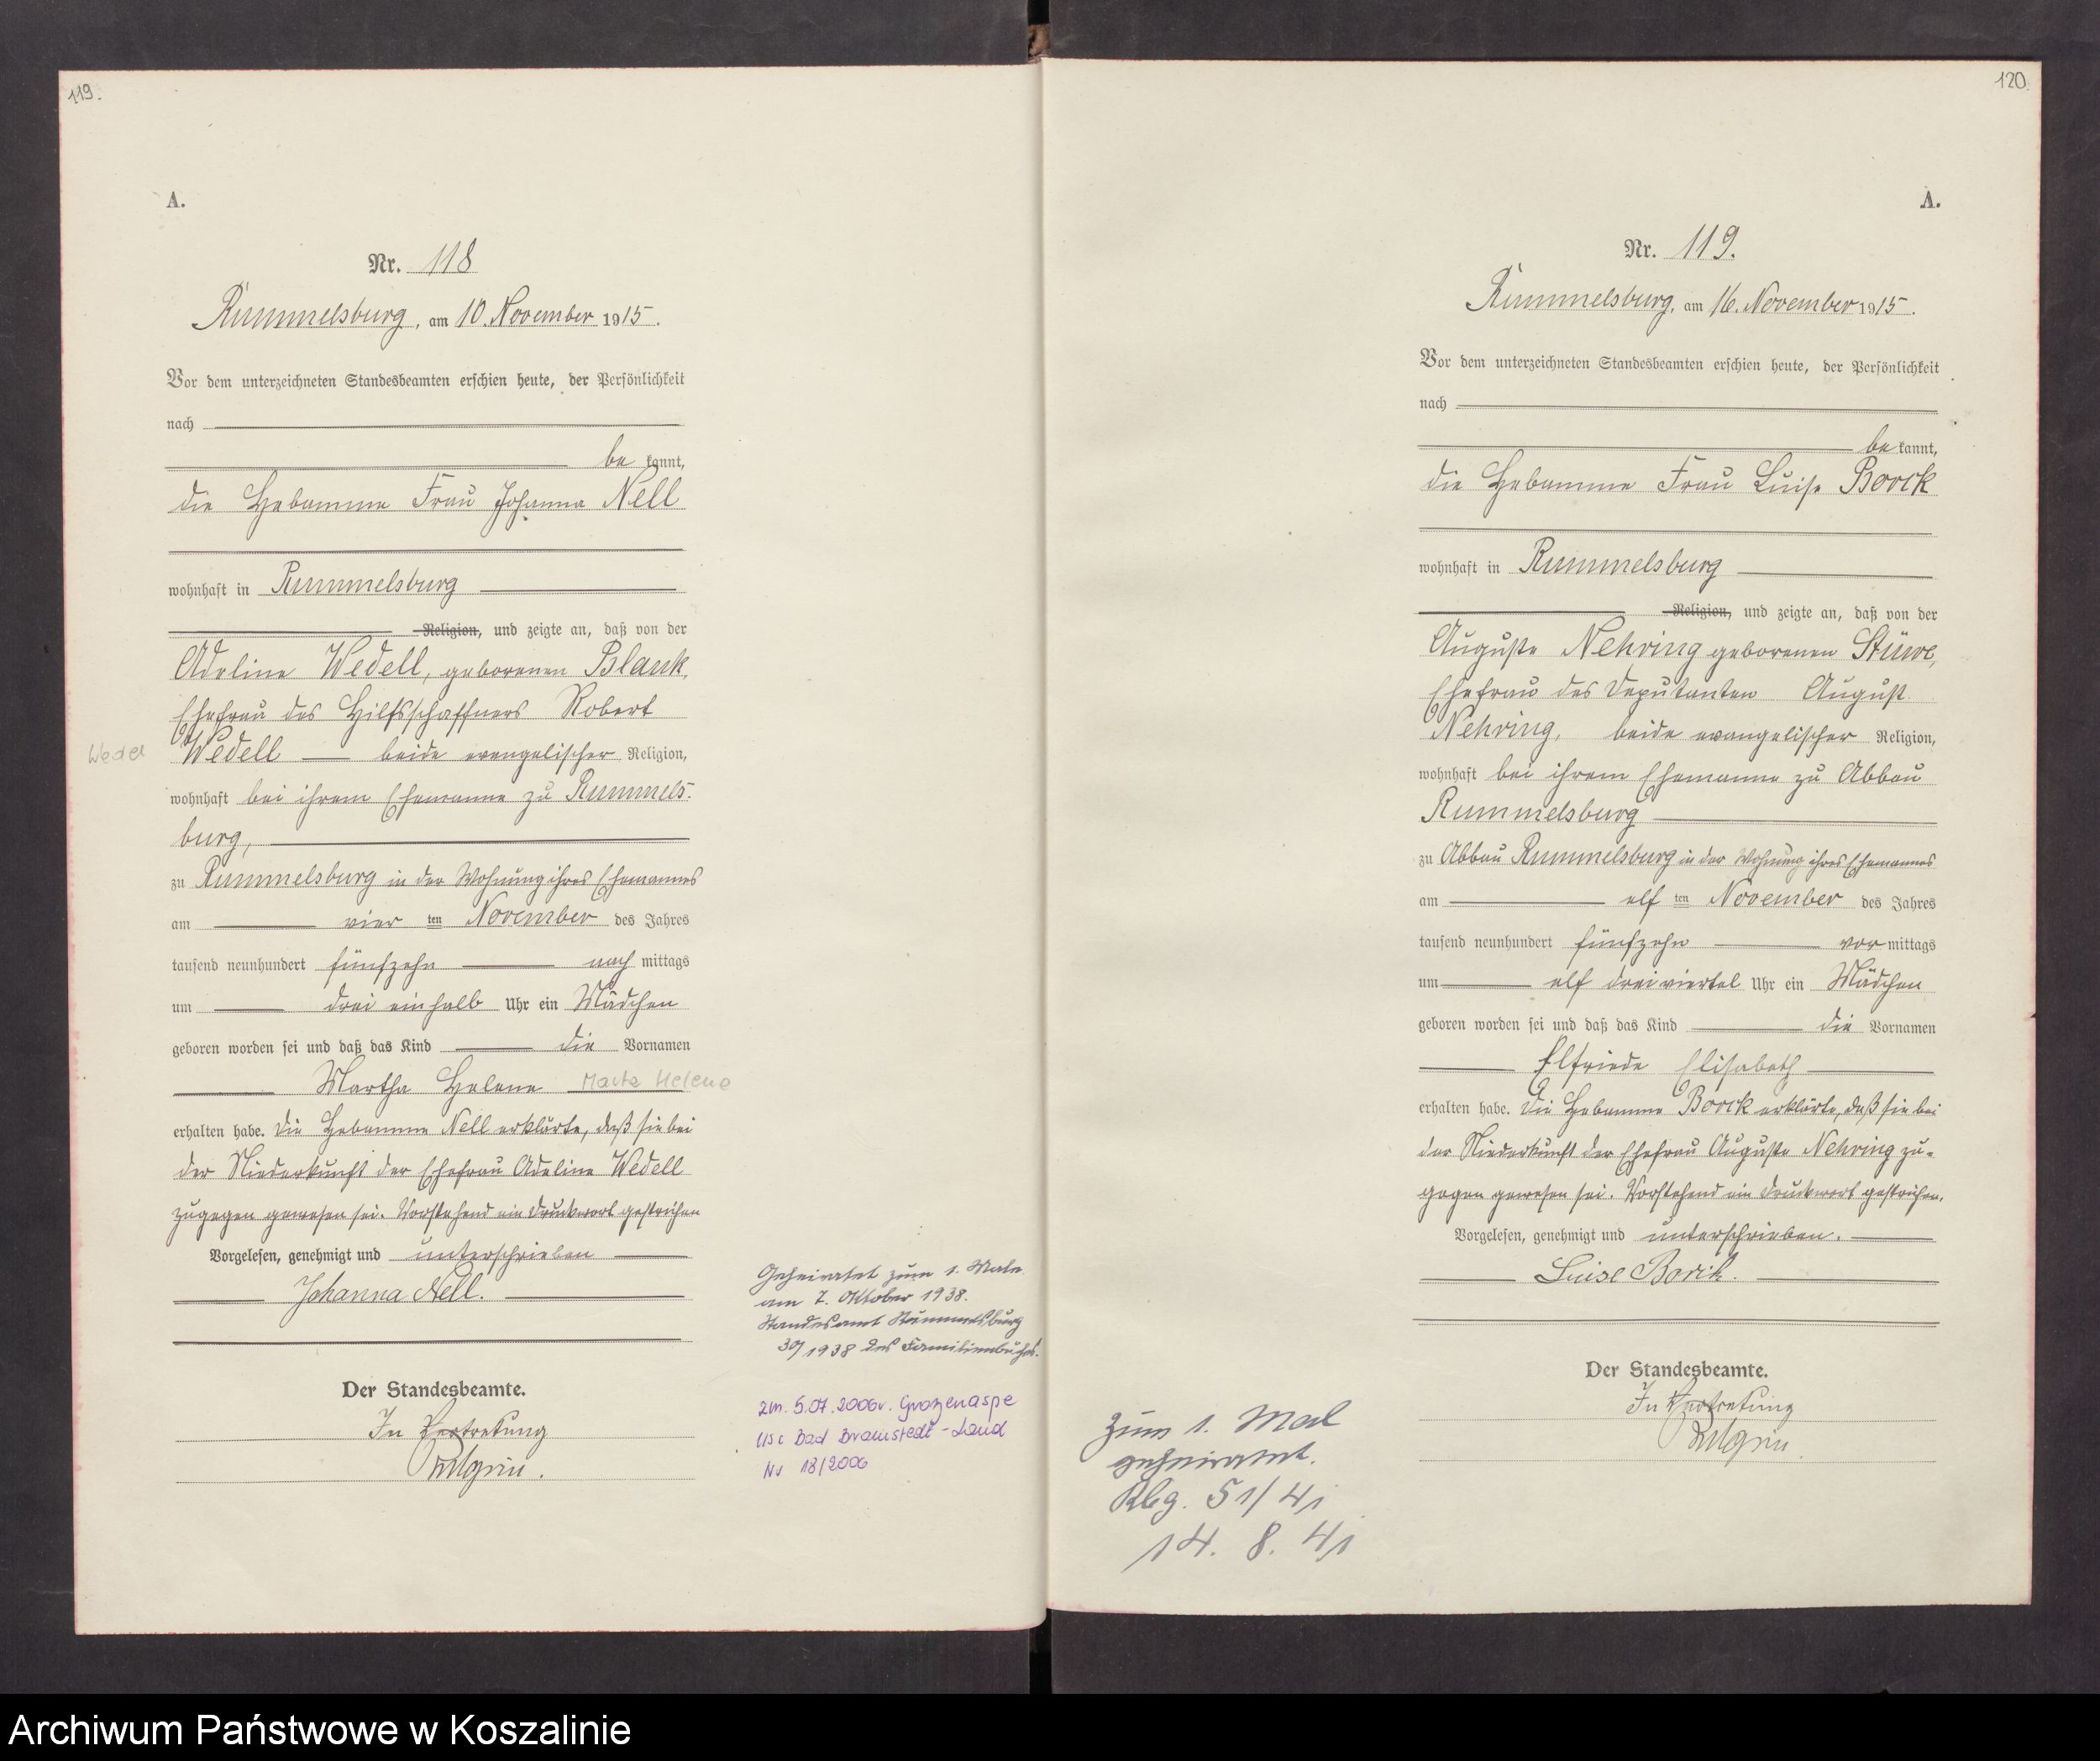 119.
A.
Nr. 118
Rummelsburg, am 10. November 1915.
Vor dem unterzeichneten Standesbeamten erschien heute, der Persönlichkeit
nach
be kannt,
die Hebamme Frau Johanna Nell
wohnhaft in Rummelsburg
Religion, und zeigte an, daß von der
Adeline Wedell, geborenen Blank,
Ehefrau des Hilfsschaffners Robert
Wedel
Wedell beide evangelischer Religion,
wohnhaft bei ihrem Ehemanne zu Rummels-
burg,
zu Rummelsburg in der Wohnung ihres Ehemannes
am vier ten November des Jahres
tausend neunhundert fünfzehn nach mittags
um drei einhalb Uhr ein Mädchen
geboren worden sei und daß das Kind die Vornamen
Martha Helene Marta Helena
erhalten habe. Die Hebamme Nell erklärte, daß sie bei
der Niederkunft der Ehefrau Adeline Wedell
zugegen gewesen sei. Vorstehend ein Druckwort gestrichen
Vorgelesen, genehmigt und unterschrieben
Johanna Nell.
Der Standesbeamte.
In Vertretung
Geheiratet zum 1. Male
am 7. Oktober 1938.
Standesamt Rummelsburg
30/1938 des Familienbuches.
zm. 5.07.2006r. Grozenaspe
USC Bad Bramstedt-Land
Nr 18/2006
120.
A.
Nr. 119.
Rummelsburg, am 16. November 1915.
Vor dem unterzeichneten Standesbeamten erschien heute, der Persönlichkeit
nach
be kannt,
die Hebamme Frau Luise Borck
wohnhaft in Rummelsburg
Religion, und zeigte an, daß von der
Auguste Nehring geborenen Stüwe,
Ehefrau des Deputanten August
Nehring, beide evangelischer Religion,
wohnhaft bei ihrem Ehemanne zu Abbau
Rummelsburg
zu Abbau Rummelsburg in der Wohnung ihres Ehemannes
am elf ten November des Jahres
tausend neunhundert fünfzehn vor mittags
um elf dreiviertel Uhr ein Mädchen
geboren worden sei und daß das Kind die Vornamen
Elfriede Elisabeth
erhalten habe. Die Hebamme Borck erklärte, daß sie bei
der Niederkunft der Ehefrau Auguste Nehring zu-
gegen gewesen sei. Vorstehend ein Druckwort gestrichen.
Vorgelesen, genehmigt und unterschrieben.
Luise Borck.
Der Standesbeamte.
In Vertretung
zum 1. Mal
geheiratet.
Rbg. 51/41
14. 8. 41
Archiwum Państwowe w Koszalinie